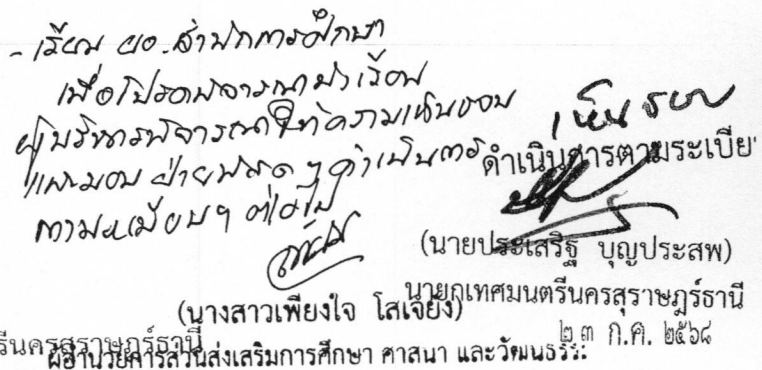 - เรียน ผอ.สำนักการศึกษา
เพื่อโปรดพิจารณานำเรียน
ผู้บริหารพิจารณาให้ความเห็นชอบ
และมอบฝ่ายพัสดุฯ ดำเนินการ
ตามระเบียบฯ ต่อไป
(นางสาวเพียงใจ โสเจยยัง)
ผู้อำนวยการส่วนส่งเสริมการศึกษา ศาสนา และวัฒนธรร
เห็นชอบ
ดำเนินการตามระเบีย
(นายประเสริฐ บุญประสพ)
นายกเทศมนตรีนครสุราษฎร์ธานี
๒๓ ก.ค. ๒๕๖๘
รีนครสุราษฎร์ธานี